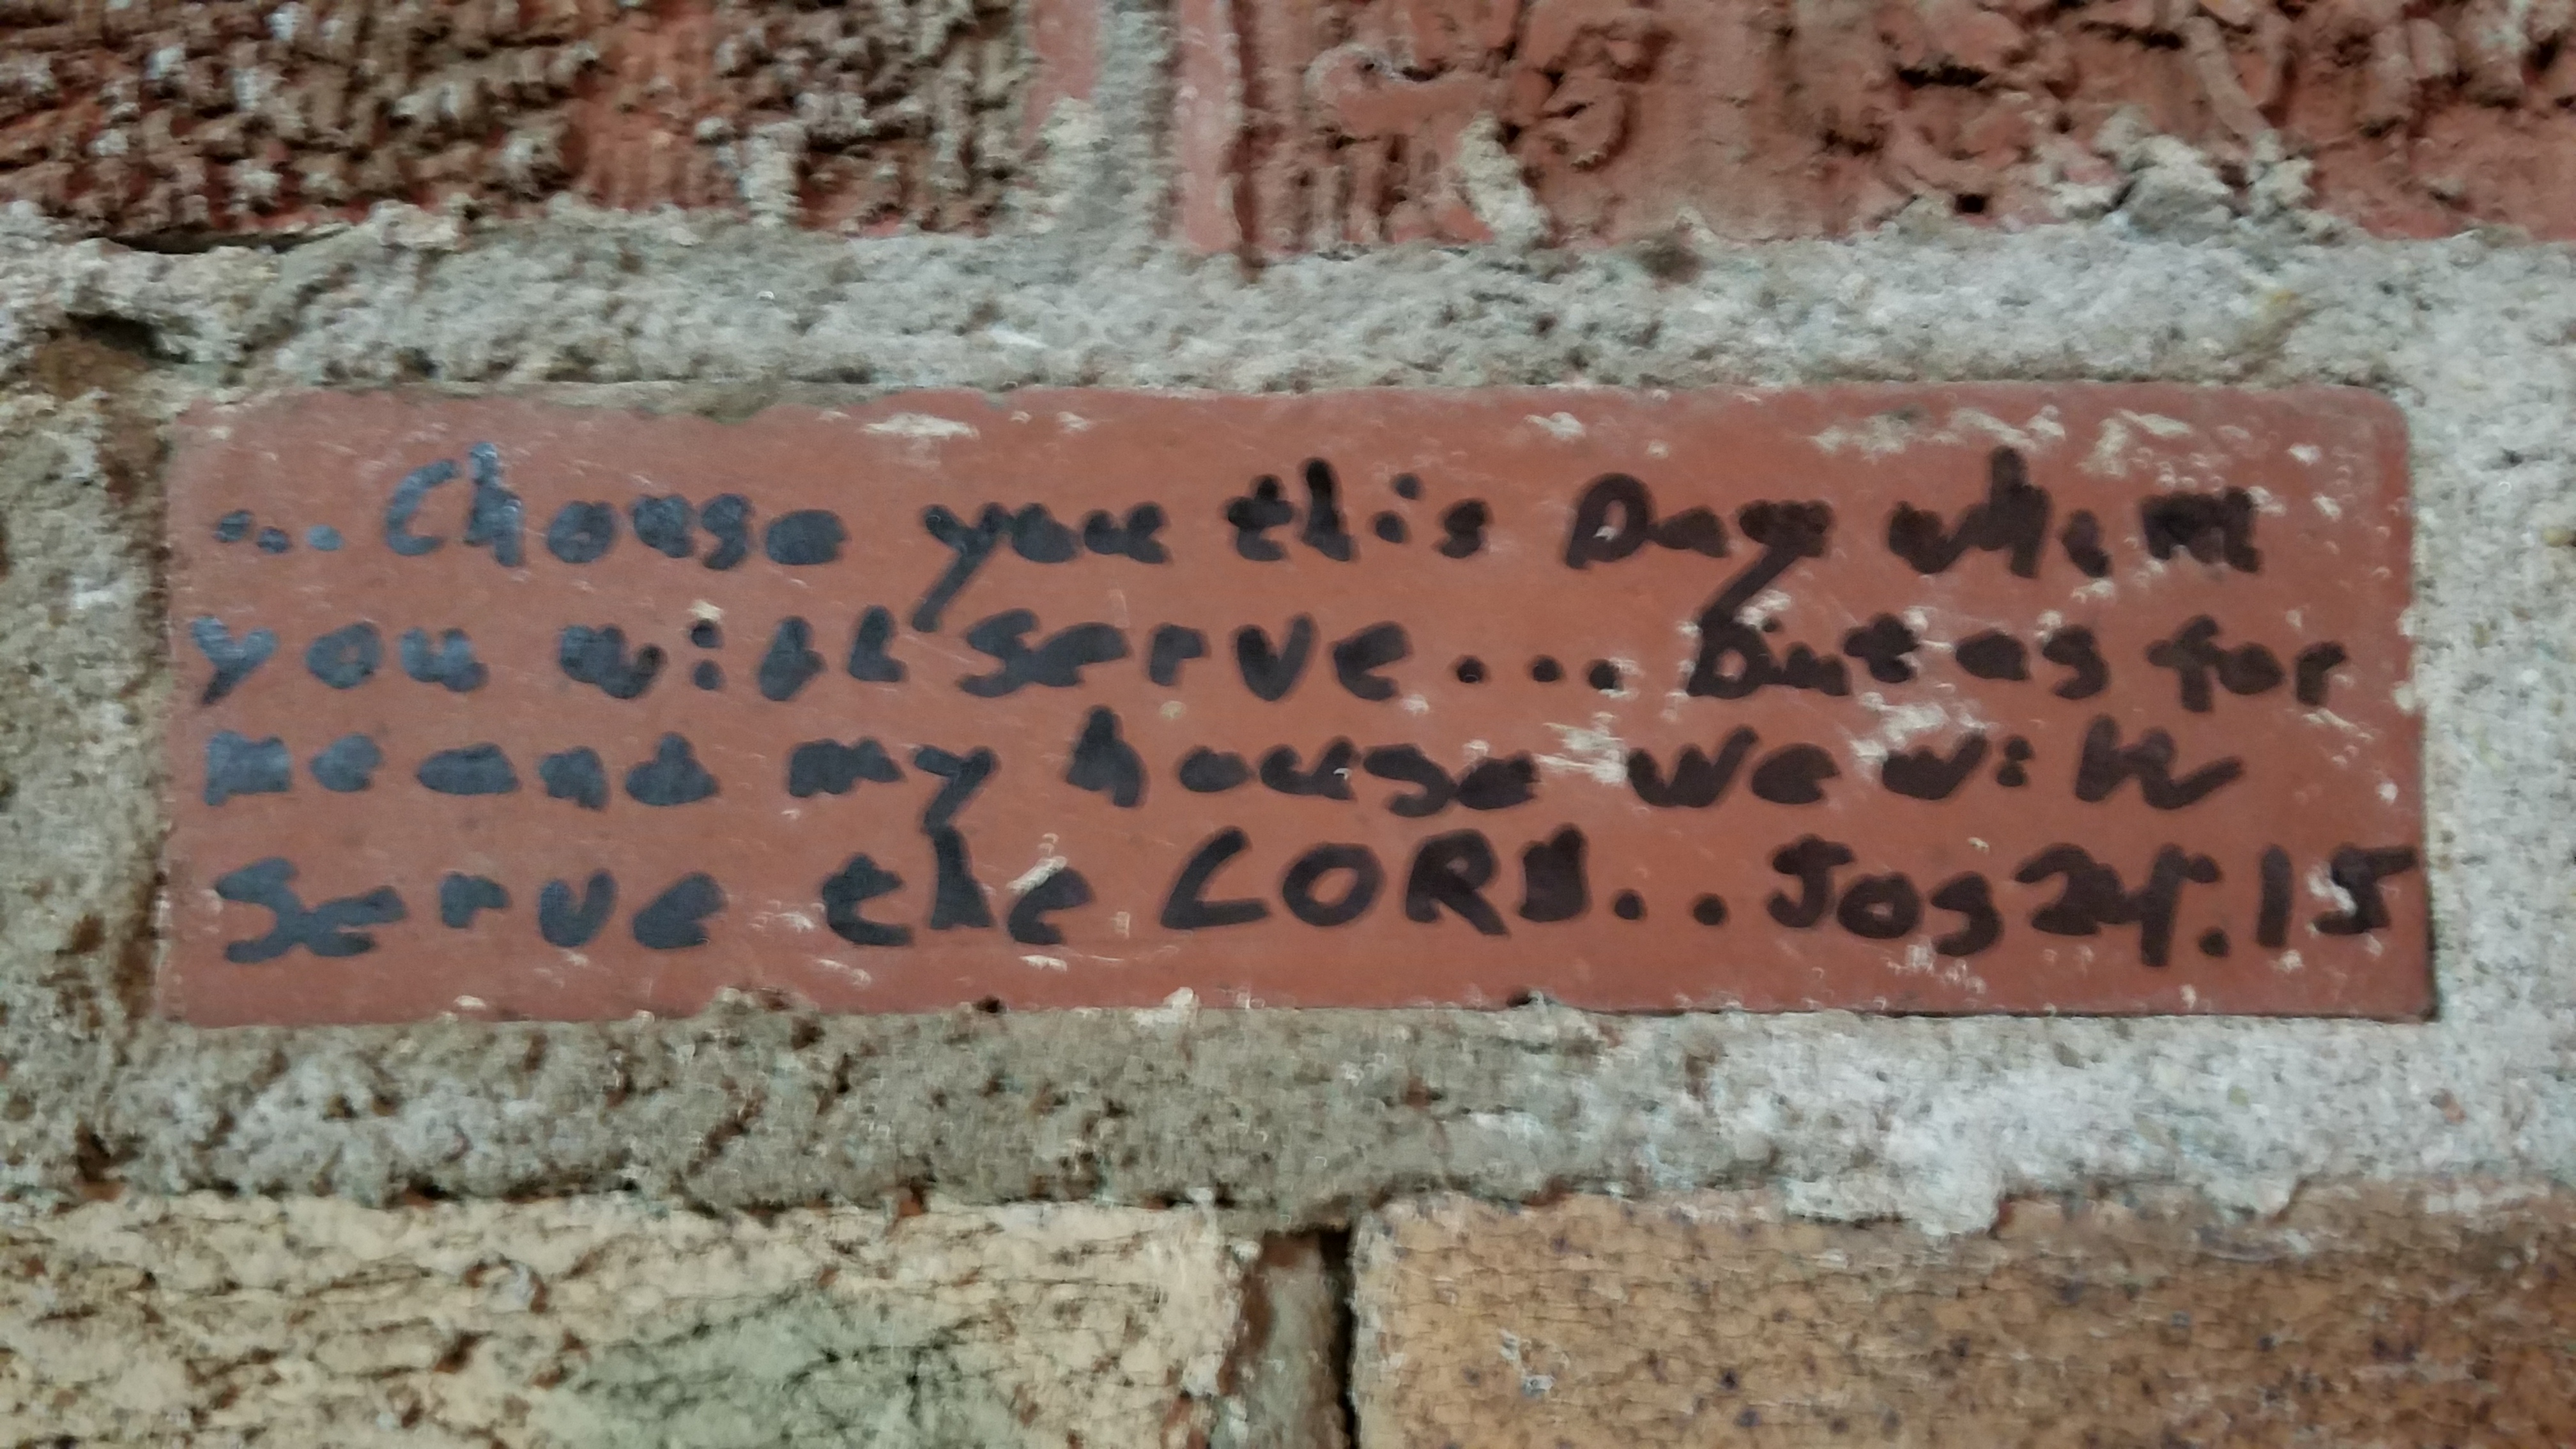 ... Choose you this Day whim
you will serve ... but as for
me and my house we will
serve the LORD.. Jos 24.15